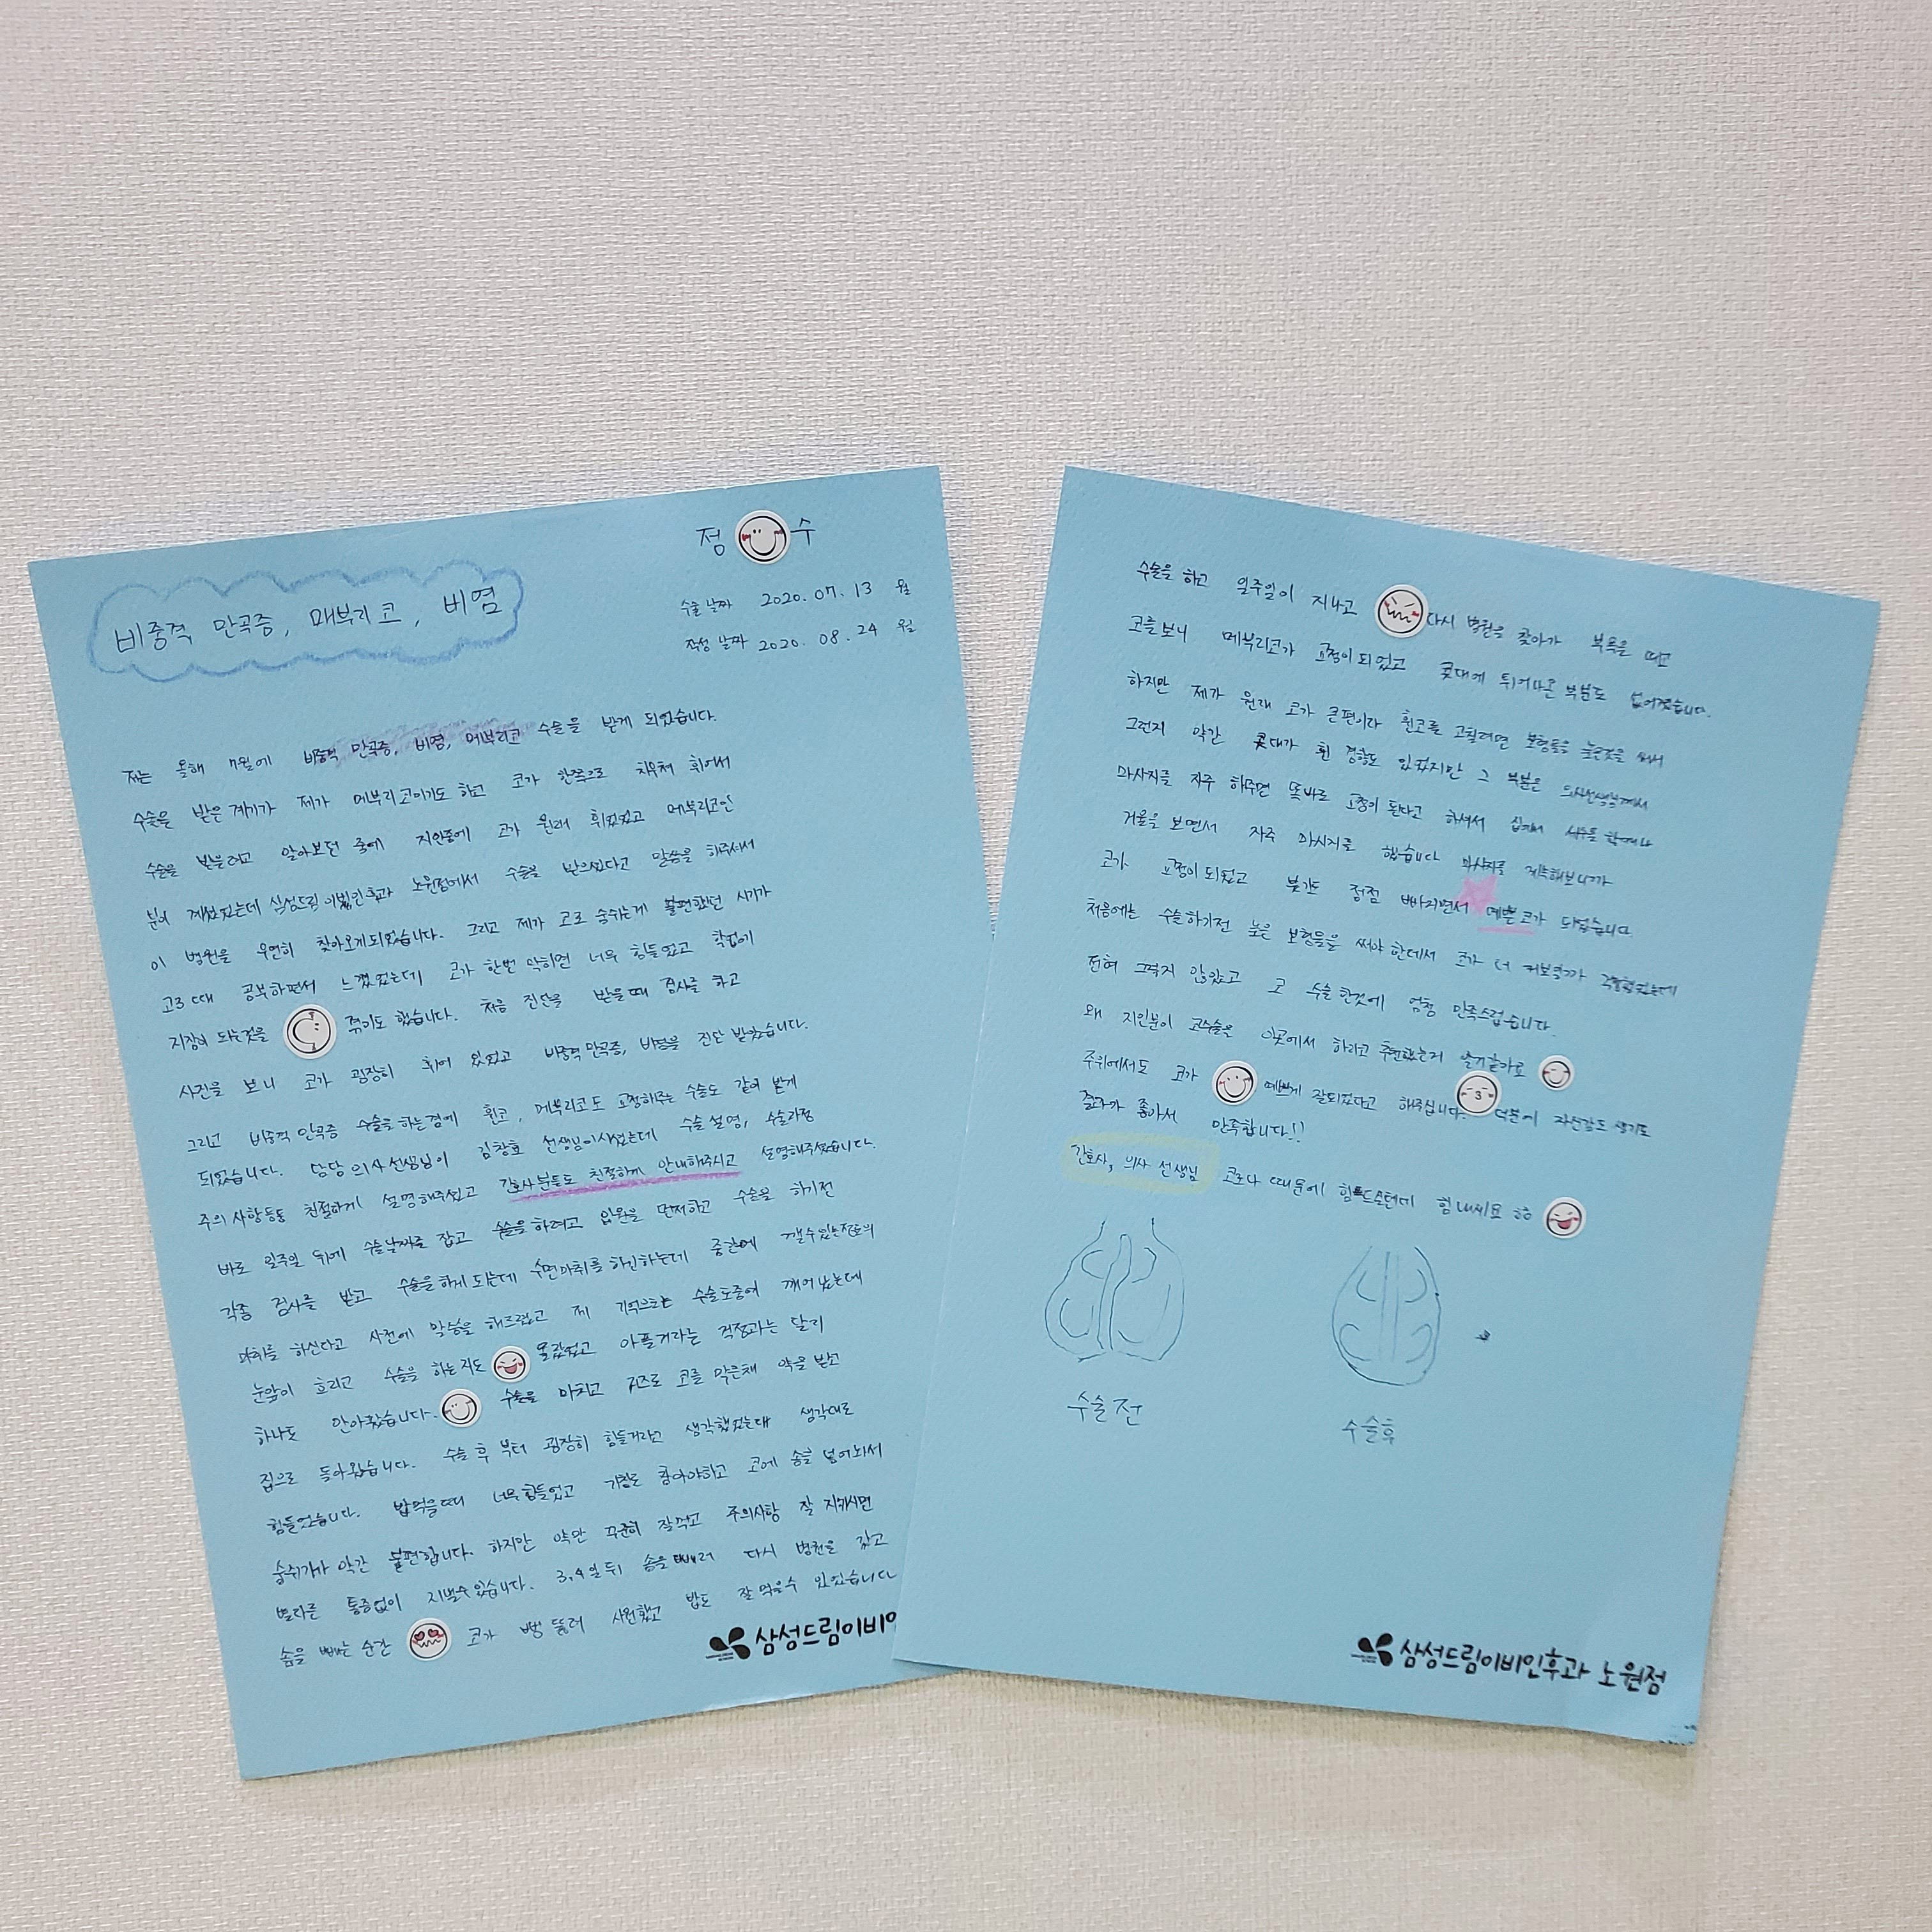 정 수
비중격 만곡증, 매부리코, 비염
수술날짜 2020. 07. 13 월
작성 날짜 2020. 08. 24 월
저는 올해 7월에 비중격 만곡증, 비염, 메부리코 수술을 받게 되었습니다.
수술을 받은 계기가 제가 메부리코이기도 하고 코가 한쪽으로 치우쳐 휘어서
수술을 받을려고 알아보던 중에 지인중에 코가 원래 휘었었고 메부리코인
분이 계셨었는데 삼성드림이비인후과 노원점에서 수술을 받으셨다고 말씀을 해주셔서
이 병원을 우연히 찾아오게되었습니다. 그리고 제가 코로 숨쉬는게 불편했던 시기가
고3 때 공부하면서 느꼈었는데 코가 한번 막히면 너무 힘들었고 학업에
지장이 되는것을 겪기도 했습니다. 처음 진단을 받을때 검사를 하고
사진을 보니 코가 굉장히 휘어 있었고 비중격만곡증, 비염을 진단 받았습니다.
그리고 비중격 만곡증 수술을 하는겸에 휜코, 메부리코도 교정해주는 수술도 같이 받게
되었습니다. 담당 의사선생님이 김창호 선생님이셨는데 수술 설명, 수술과정
주의 사항등등 친절하게 설명해주셨고 간호사분들도 친절하게 안내해주시고 설명해주셨습니다.
바로 일주일 뒤에 수술날짜를 잡고 수술을 하려고 입원을 먼저하고 수술을 하기전
각종 검사를 받고 수술을 하게 되는데 수면마취를 하신하는데 중간에 깰수있는정도의
마취를 하신다고 사전에 말씀을 해주셨고 제 기억으로는 수술도중에 깨어 났는데
눈앞이 흐리고 수술을 하는지도 몰랐었고 아플거라는 걱정과는 달리
하나도 안아팠습니다. 수술을 마치고 거즈로 코를 막은채 약을 받고
집으로 돌아왔습니다. 수술 후 부터 굉장히 힘들거라고 생각했었는데 생각대로
힘들었습니다. 밥먹을때 너무힘들었고 기침도 참아야하고 코에 솜을 넣어놔서
숨쉬기가 약간 불편합니다. 하지만 약만 꾸준히 잘먹고 주의사항 잘 지키시면
별다른 통증없이 지낼수있습니다. 3,4일 뒤 솜을 빼러 다시 병원을 갔고
솜을 빼는 순간 코가 뻥 뚫려 시원했고 밥도 잘 먹을수 있었습니다
삼성드림이비인
수술을 하고 일주일이 지나고 다시 병원을 찾아가 부목을 떼고
코를보니 메부리코가 교정이 되었고 콧대에 튀어나온 부분도 없어졌습니다.
하지만 제가 원래 코가 큰편이라 휜코를 고칠려면 보형물을 높은것을 써서
그런지 약간 콧대가 휜 경향도 있었지만 그 부분은 의사선생님께서
마사지를 자주 하주면 똑바로 교정이 된다고 하셔서 집에서 세수를 할때나
거울을 보면서 자주 마사지를 했습니다 마사지를 계속해보니까
코가 교정이 되었고 붓기도 점점 빠지면서 예쁜 코가 되었습니다.
처음에는 수술하기전 높은 보형물을 써야 한데서 코가 더 커보일까 걱정했었는데
전혀 그렇지 않았고 코 수술 한것에 엄청 만족스럽습니다.
왜 지인분이 코수술은 이곳에서 하라고 추천했는지 알거같아요
주위에서도 코가 예쁘게 잘되었다고 해주십니다. 덕분에 자신감도 생기고
결과가 좋아서 만족합니다!!
간호사, 의사 선생님 코로나 때문에 힘드실텐데 힘내세요 ㅎㅎ
수술전
수술후
삼성드림이비인후과 노원점